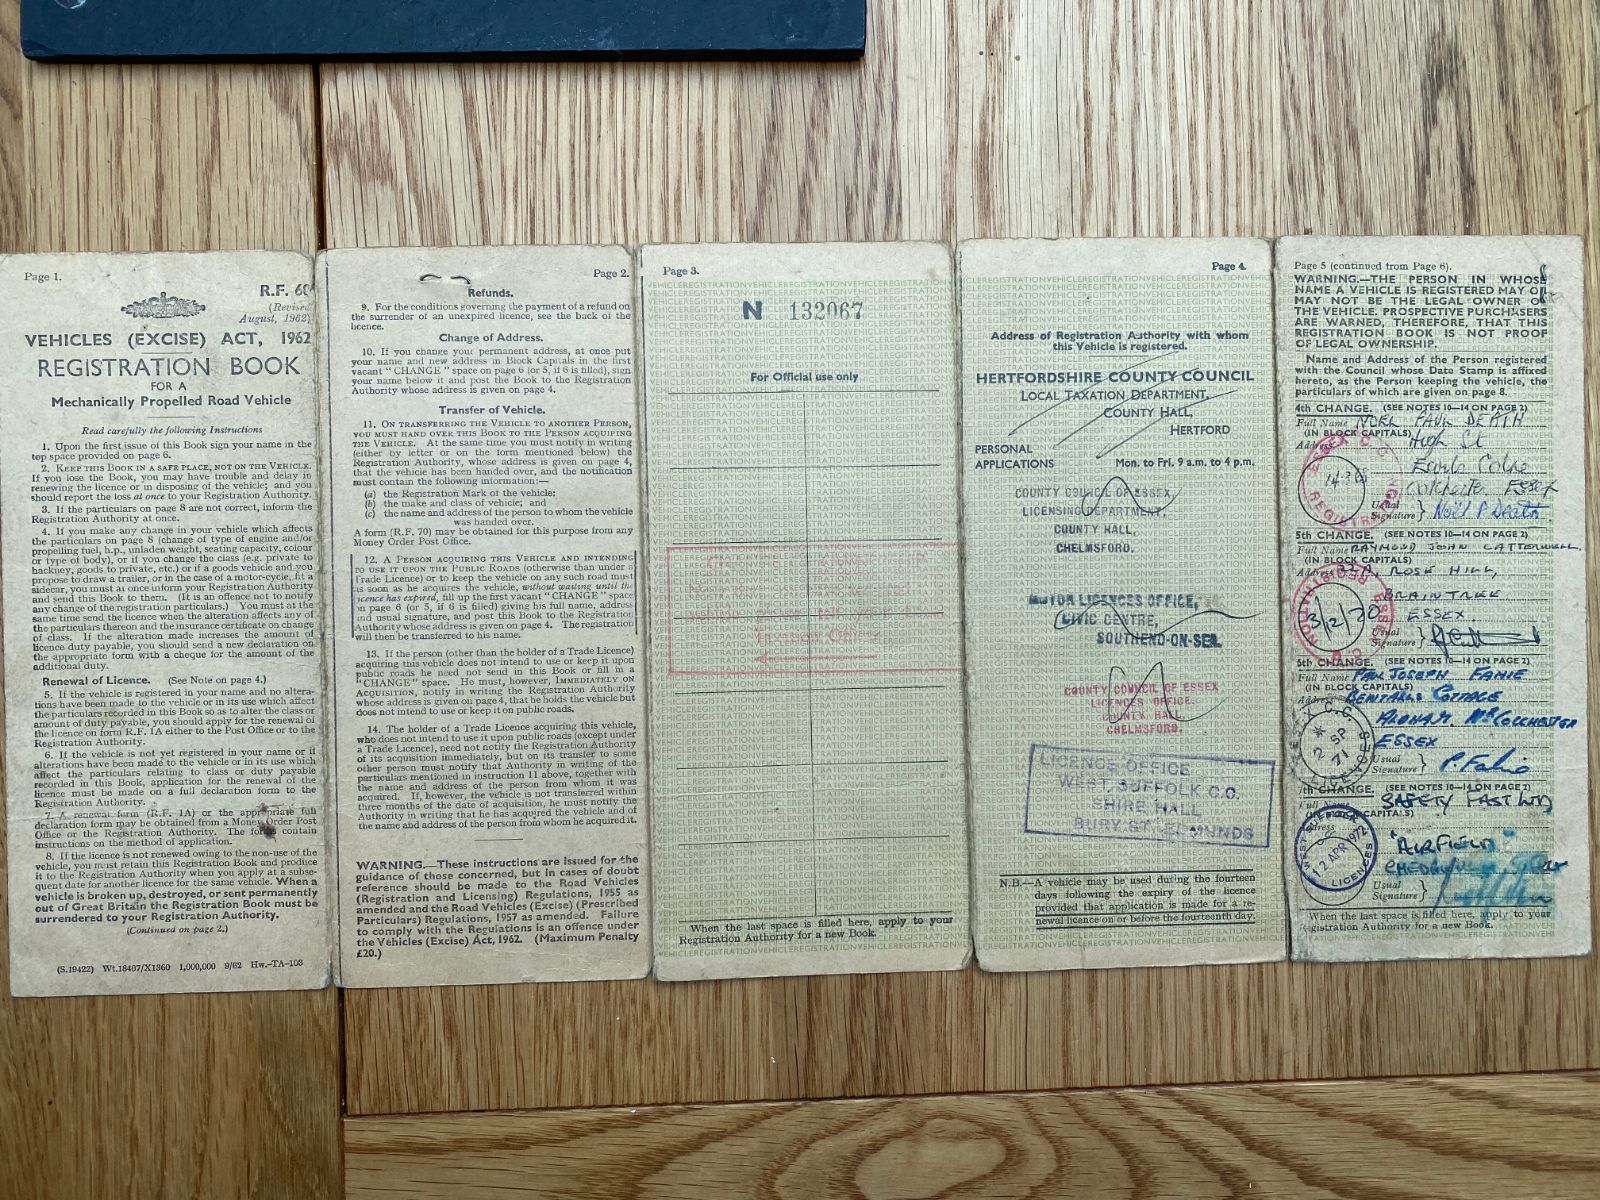 Page 1.
R.F. 60
(Revised
August, 1962)
VEHICLES (EXCISE) ACT, 1962
REGISTRATION BOOK
FOR A
Mechanically Propelled Road Vehicle
Read carefully the following Instructions
1. Upon the first issue of this Book sign your name in the
top space provided on page 6.
2. KEEP THIS BOOK IN A SAFE PLACE, NOT ON THE VEHICLE.
If you lose the Book, you may have trouble and delay in
renewing the licence or in disposing of the vehicle; and you
should report the loss at once to your Registration Authority.
3. If the particulars on page 8 are not correct, inform the
Registration Authority at once.
4. If you make any change in your vehicle which affects
the particulars on page 8 (change of type of engine and/or
propelling fuel, h.p., unladen weight, seating capacity, colour
or type of body), or if you change the class (e.g. private to
hackney, goods to private, etc.) or if a goods vehicle and you
propose to draw a trailer, or in the case of a motor-cycle, fit a
sidecar, you must at once inform your Registration Authority
and send this Book to them. (It is an offence not to notify
any change of the registration particulars.) You must at the
same time send the licence when the alteration affects any of
the particulars thereon and the insurance certificate on change
of class. If the alteration made increases the amount of
licence duty payable, you should send a new declaration on
the appropriate form with a cheque for the amount of the
additional duty.
Renewal of Licence. (See Note on page 4.)
5. If the vehicle is registered in your name and no altera-
tions have been made to the vehicle or in its use which affect
the particulars recorded in this Book so as to alter the class or
amount of duty payable, you should apply for the renewal of
the licence on form R.F. 1A either to the Post Office or to the
Registration Authority.
6. If the vehicle is not yet registered in your name or if
alterations have been made to the vehicle or in its use which
affect the particulars relating to class or duty payable
recorded in this Book, application for the renewal of the
licence must be made on a full declaration form to the
Registration Authority.
7. A renewal form (R.F. 1A) or the appropriate full
declaration form may be obtained from a Money Order Post
Office or the Registration Authority. The forms contain
instructions on the method of application.
8. If the licence is not renewed owing to the non-use of the
vehicle, you must retain this Registration Book and produce
it to the Registration Authority when you apply at a subse-
quent date for another licence for the same vehicle. When a
vehicle is broken up, destroyed, or sent permanently
out of Great Britain the Registration Book must be
surrendered to your Registration Authority.
(Continued on page 2.)
(S.19422) Wt.18407/X1360 1,000,000 9/62 Hw.-TA-108
Page 2.
Refunds.
9. For the conditions governing the payment of a refund on
the surrender of an unexpired licence, see the back of the
licence.
Change of Address.
10. If you change your permanent address, at once put
your name and new address in Block Capitals in the first
vacant "CHANGE" space on page 6 (or 5, if 6 is filled), sign
your name below it and post the Book to the Registration
Authority whose address is given on page 4.
Transfer of Vehicle.
11. ON TRANSFERRING THE VEHICLE TO ANOTHER PERSON,
YOU MUST HAND OVER THIS BOOK TO THE PERSON ACQUIRING
THE VEHICLE. At the same time you must notify in writing
(either by letter or on the form mentioned below) the
Registration Authority, whose address is given on page 4,
that the vehicle has been handed over, and the notification
must contain the following information:—
(a) the Registration Mark of the vehicle;
(b) the make and class of vehicle; and
(c) the name and address of the person to whom the vehicle
was handed over.
A form (R.F. 70) may be obtained for this purpose from any
Money Order Post Office.
12. A PERSON ACQUIRING THIS VEHICLE AND INTENDING
TO USE IT UPON THE PUBLIC ROADS (otherwise than under a
Trade Licence) or to keep the vehicle on any such road must
as soon as he acquires the vehicle, without waiting until the
licence has expired, fill up the first vacant "CHANGE" space
on page 6 (or 5, if 6 is filled) giving his full name, address
and usual signature, and post this Book to the Registration
Authority whose address is given on page 4. The registration
will then be transferred to his name.
13. If the person (other than the holder of a Trade Licence)
acquiring this vehicle does not intend to use or keep it upon
public roads he need not send in this Book or fill in a
"CHANGE" space. He must, however, IMMEDIATELY ON
ACQUISITION, notify in writing the Registration Authority
whose address is given on page 4, that he holds the vehicle but
does not intend to use or keep it on public roads.
14. The holder of a Trade Licence acquiring this vehicle,
who does not intend to use it upon public roads (except under
a Trade Licence), need not notify the Registration Authority
of its acquisition immediately, but on its transfer to some
other person must notify that Authority in writing of the
particulars mentioned in instruction 11 above, together with
the name and address of the person from whom it was
acquired. If, however, the vehicle is not transferred within
three months of the date of acquisition, he must notify the
Authority in writing that he has acquired the vehicle and of
the name and address of the person from whom he acquired it.
WARNING.—These instructions are issued for the
guidance of those concerned, but in cases of doubt
reference should be made to the Road Vehicles
(Registration and Licensing) Regulations, 1955 as
amended and the Road Vehicles (Excise) (Prescribed
Particulars) Regulations, 1957 as amended. Failure
to comply with the Regulations is an offence under
the Vehicles (Excise) Act, 1962. (Maximum Penalty
£20.)
Page 3.
N 132067
For Official use only
When the last space is filled here, apply to your
Registration Authority for a new Book.
Page 4.
Address of Registration Authority with whom
this Vehicle is registered.
HERTFORDSHIRE COUNTY COUNCIL
LOCAL TAXATION DEPARTMENT,
COUNTY HALL,
HERTFORD
PERSONAL
APPLICATIONS Mon. to Fri. 9 a.m. to 4 p.m.
COUNTY COUNCIL OF ESSEX,
LICENSING DEPARTMENT,
COUNTY HALL,
CHELMSFORD.
MOTOR LICENCES OFFICE,
CIVIC CENTRE,
SOUTHEND-ON-SEA.
COUNTY COUNCIL OF ESSEX
LICENCES OFFICE.
COUNTY HALL,
CHELMSFORD.
LICENCE OFFICE
WEST SUFFOLK C.C.
SHIRE HALL
BURY ST. EDMUNDS
N.B.—A vehicle may be used during the fourteen
days following the expiry of the licence
provided that application is made for a re-
newal licence on or before the fourteenth day.
Page 5 (continued from Page 6).
WARNING.—THE PERSON IN WHOSE
NAME A VEHICLE IS REGISTERED MAY OR
MAY NOT BE THE LEGAL OWNER OF
THE VEHICLE. PROSPECTIVE PURCHASERS
ARE WARNED, THEREFORE, THAT THIS
REGISTRATION BOOK IS NOT PROOF
OF LEGAL OWNERSHIP.
Name and Address of the Person registered
with the Council whose Date Stamp is affixed
hereto, as the Person keeping the vehicle, the
particulars of which are given on page 8.
4th CHANGE. (SEE NOTES 10—14 ON PAGE 2)
Full Name NOEL PAUL DEATH
(IN BLOCK CAPITALS)
Address High St
Earls Colne
Colchester Essex
Usual
Signature } Noel P Death
5th CHANGE. (SEE NOTES 10—14 ON PAGE 2)
Full Name RAYMOND JOHN CATTERWELL,
(IN BLOCK CAPITALS)
Address 32A, ROSE HILL,
BRAINTREE
ESSEX.
3/12/70
Usual
Signature }
6th CHANGE. (SEE NOTES 10—14 ON PAGE 2)
Full Name PAUL JOSEPH FAHIE
(IN BLOCK CAPITALS)
Address COTTAGE
ALDHAM. Nr COLCHESTER
ESSEX
2 SP 71
LICENCES
Usual
Signature } P. Fahie
7th CHANGE. (SEE NOTES 10—14 ON PAGE 2)
Full Name SAFETY FAST LTD
(IN BLOCK CAPITALS)
Address
"AIRFIELD"
WEST SUFFOLK
12 APR 1972
LICENCES
Usual
Signature }
When the last space is filled here, apply to your
Registration Authority for a new Book.